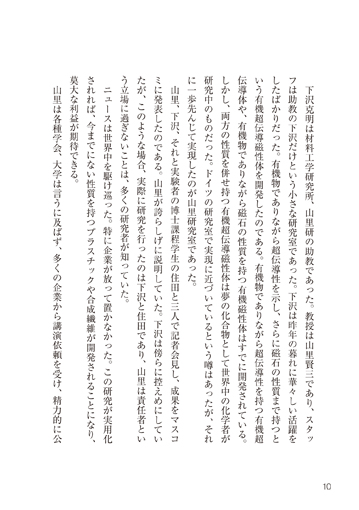 下沢克明は材料工学研究所、山里研の助教であった。教授は山里賢三であり、スタッ
フは助教の下沢だけという小さな研究室であった。下沢は昨年の暮れに華々しい活躍を
したばかりだった。有機物でありながら超伝導性を示し、さらに磁石の性質まで持つと
いう有機超伝導磁性体を開発したのである。有機物でありながら超伝導性を持つ有機超
伝導体や、有機物でありながら磁石の性質を持つ有機磁性体はすでに開発されている。
しかし、両方の性質を併せ持つ有機超伝導磁性体は夢の化合物として世界中の化学者が
研究中のものだった。ドイツの研究室で実現に近づいているという噂はあったが、それ
に一歩先んじて実現したのが山里研究室であった。
山里、下沢、それと実験者の博士課程学生の住田と三人で記者会見し、成果をマスコ
ミに発表したのである。山里が誇らしげに説明していた。下沢は傍らに控えめにしてい
たが、このような場合、実際に研究を行ったのは下沢と住田であり、山里は責任者とい
う立場に過ぎないことは、多くの研究者が知っていた。
ニュースは世界中を駆け巡った。特に企業が放って置かなかった。この研究が実用化
されれば、今までにない性質を持つプラスチックや合成繊維が開発されることになり、
莫大な利益が期待できる。
山里は各種学会、大学は言うに及ばず、多くの企業から講演依頼を受け、精力的に公
10